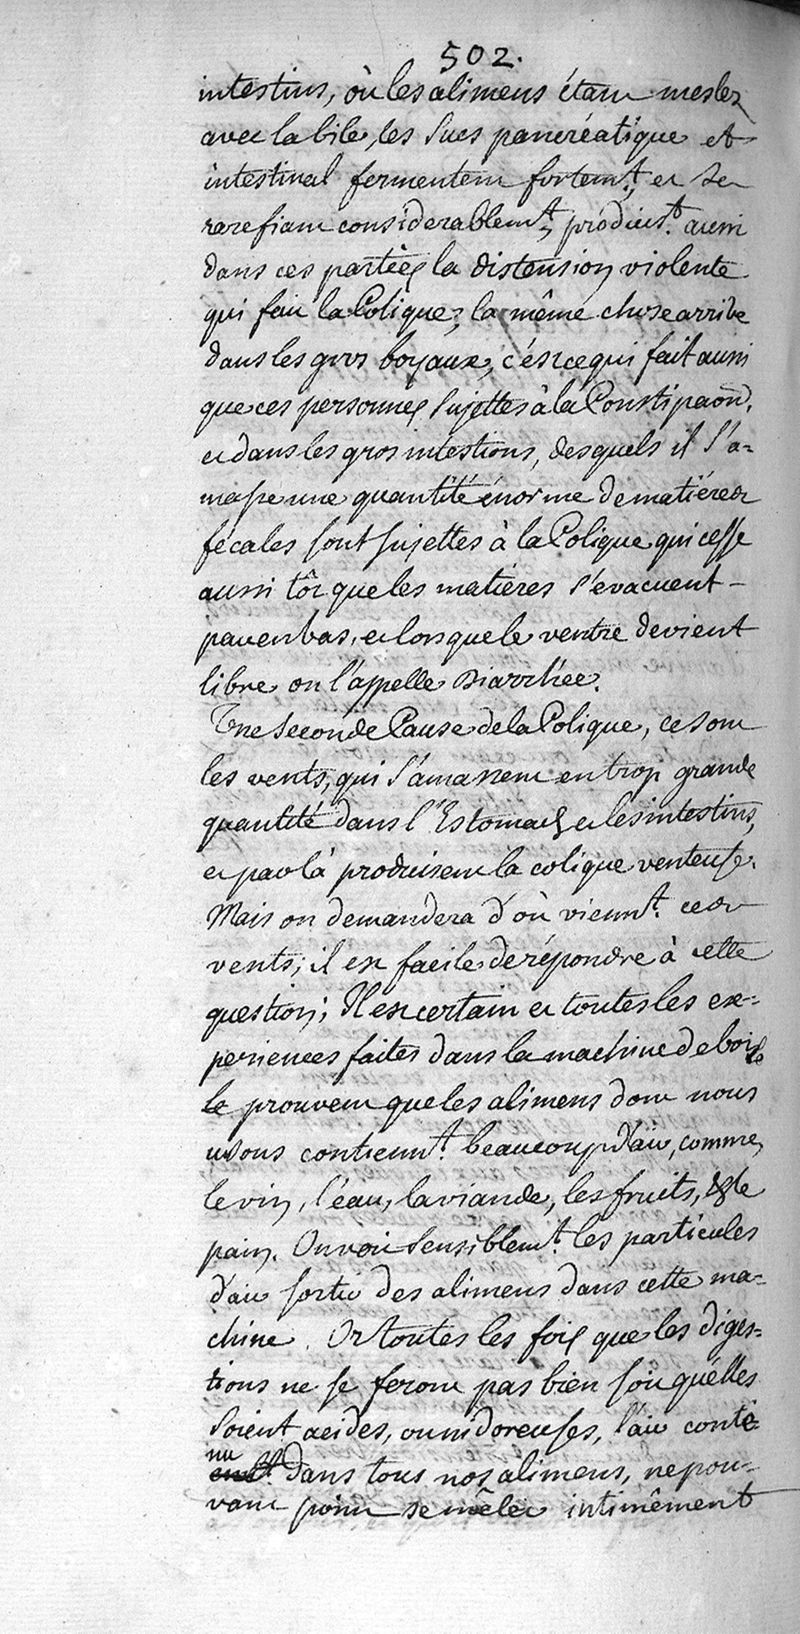 502.
intestins, où les alimens étant meslez
avec la bile, les Sucs pancréatique et
intestinal fermentent fortemt, et se
rarefiant considerablemt, produist. aussi
dans ces parties la distension violente
qui fait la Colique, la même chose arrive
dans les gros boyaux, c'est ce qui fait aussi
que ces personnes Sujettes à la Constipaõn,
et dans les gros intestions, desquels il S'a=
masse une quantité énorme de matiéres
fécales sont sujettes à la Colique qui cesse
aussi tôt que les matiéres s'evacuent -
par en bas, et lorsque le ventre devient
libre on l'appelle Diarrhée.
Une Seconde Cause de la Colique, ce sont
les vents, qui S'amassent en trop grande
quantité dans l'Estomach et les intestins,
et par là produisent la colique venteuse.
Mais on demandera d'où viennt. ces
vents; il est facile de répondre à cette
question; Il est certain et toutes les ex=
periences faites dans la machine de boile
le prouvent que les alimens dont nous
usons contiennt. beaucoup d'air, comme
le vin, l'éau, la viande, les fruits, & le
pain. On voit sensiblemt. les particules
d'air sortir des alimens dans cette ma=
chine. Or toutes les fois que les diges=
tions ne se feront pas bien soit qu'élles
soient acides, ou nidoreuses, l'air conte
nu
dans tous nos alimens, ne pou=
vant point se mêler intimêment